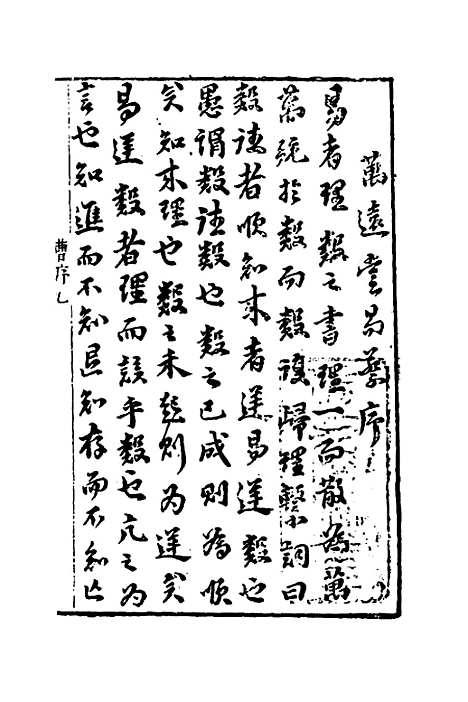 萬遠堂易蔡序
易者理數之書理一而散為萬
萬統於數而數復歸理繫詞曰
數往者順知來者逆易逆數也
愚謂數往數也數之已成則為順
矣知來理也數之未起則為逆矣
易逆數者理而該乎數也亢之為
言也知進而不知退知存而不知亡
曹序乙